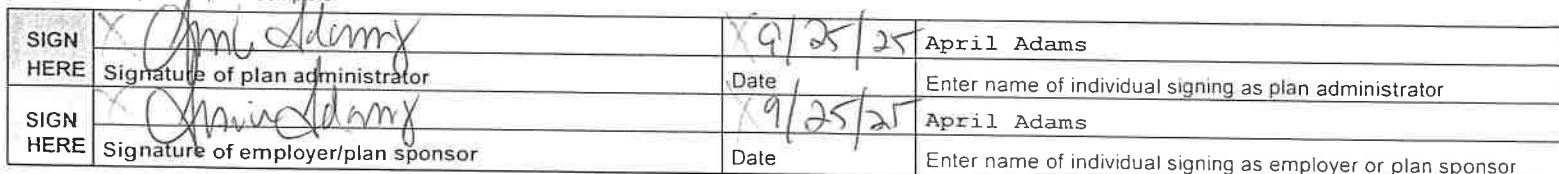 SIGN
HERE
X April Adams
X 9/25/25
April Adams
Signature of plan administrator
Date
Enter name of individual signing as plan administrator
SIGN
HERE
X April Adams
X 9/25/25
April Adams
Signature of employer/plan sponsor
Date
Enter name of individual signing as employer or plan sponsor